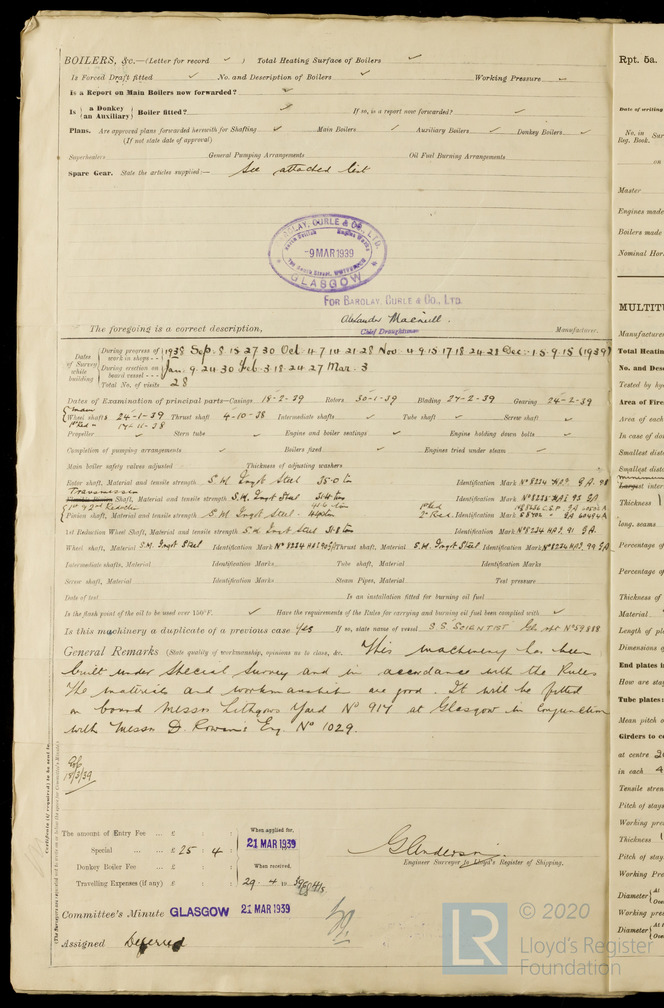 BOILERS, &c.—(Letter for record ✓ ) Total Heating Surface of Boilers ✓
Is Forced Draft fitted ✓ No. and Description of Boilers ✓ Working Pressure ✓
Is a Report on Main Boilers now forwarded? ✓
Is { a Donkey / an Auxiliary } Boiler fitted? If so, is a report now forwarded? ✓
Plans. Are approved plans forwarded herewith for Shafting ✓ Main Boilers ✓ Auxiliary Boilers ✓ Donkey Boilers ✓
(If not state date of approval)
Superheaters General Pumping Arrangements Oil Fuel Burning Arrangements
Spare Gear. State the articles supplied:— See attached list
BARCLAY, CURLE & CO., LTD.
-9 MAR 1939
GLASGOW
FOR BARCLAY, CURLE & CO., LTD.
Alexander Macneill.
Chief Draughtsman
The foregoing is a correct description, Manufacturer.
Dates of Survey while building
During progress of work in shops - - 1938 Sep. 8. 15 27 30 Oct 4 7 14 21 28 Nov 4 9 15 17 18 24 28 Dec 1 5 9 15 (1939)
During erection on board vessel - - - Jan. 9 24 30 Feb 3 18 24 27 Mar 3
Total No. of visits 28
Dates of Examination of principal parts—Casings 18-2-39 Rotors 30-1-39 Blading 27-2-39 Gearing 24-2-39
Wheel shafts 24-1-39 Thrust shaft 4-10-38 Intermediate shafts ✓ Tube shaft ✓ Screw shaft ✓
1st Red - 17-11-38
Propeller ✓ Stern tube ✓ Engine and boiler seatings ✓ Engine holding down bolts ✓
Completion of pumping arrangements ✓ Boilers fixed ✓ Engines tried under steam ✓
Main boiler safety valves adjusted Thickness of adjusting washers
Rotor shaft, Material and tensile strength S.M. Ingot Steel 35.0 ton Identification Mark
Shaft, Material and tensile strength S.M. Ingot Steel Identification Mark
Pinion shaft, Material and tensile strength S.M. Ingot Steel Identification Mark
1st Reduction Wheel Shaft, Material and tensile strength S.M. Ingot Steel 31.8 ton Identification Mark No 8234 HAJ. 91 G.A.
Wheel shaft, Material S.M. Ingot Steel Identification Mark Thrust shaft, Material S.M. Ingot Steel Identification Mark No 8234 HAJ. 99 G.A.
Intermediate shafts, Material Identification Marks Tube shaft, Material Identification Marks
Screw shaft, Material Identification Marks Steam Pipes, Material Test pressure
Date of test Is an installation fitted for burning oil fuel
Is the flash point of the oil to be used over 150°F. ✓ Have the requirements of the Rules for carrying and burning oil fuel been complied with ✓
Is this machinery a duplicate of a previous case Yes If so, state name of vessel S.S. SCIENTIST Gls rpt No 59888
General Remarks (State quality of workmanship, opinions as to class, &c. This machinery has been
built under Special Survey and in accordance with the Rules
The materials and workmanship are good. It will be fitted
on board Messrs Lithgows Yard No 917 at Glasgow in conjunction
with Messrs D. Rowans Eng. No 1029.
18/3/39
The amount of Entry Fee ... £ : :
Special ... ... £ 25 : 4 :
Donkey Boiler Fee ... £ : :
Travelling Expenses (if any) £ : :
When applied for,
21 MAR 1939
When received,
29. 4 19 39
Engineer Surveyor to Lloyd's Register of Shipping.
Committee's Minute GLASGOW 21 MAR 1939
Assigned Deferred
Rpt. 5a.
Date of writing
No. in Sur
Reg. Book.
on
Master
Engines made
Boilers made
Nominal Hor
MULTITU
Manufacture
Total Heatin
No. and Desc
Tested by hy
Area of Fire
Area of each
In case of do
Smallest dist
Smallest dista
Largest inter
Thickness
long. seams
Percentage of
Percentage of
Thickness of
Material
Length of pla
Dimensions o
End plates in
How are stay
Tube plates:
Mean pitch o
Girders to co
at centre
in each 4
Tensile stren
Pitch of stays
Working pre
Thickness
Pitch of stay
Working Pre
Diameter { At / Over
Working pres
Diameter { At t / Over
© 2020
LR
Lloyd's Register
Foundation